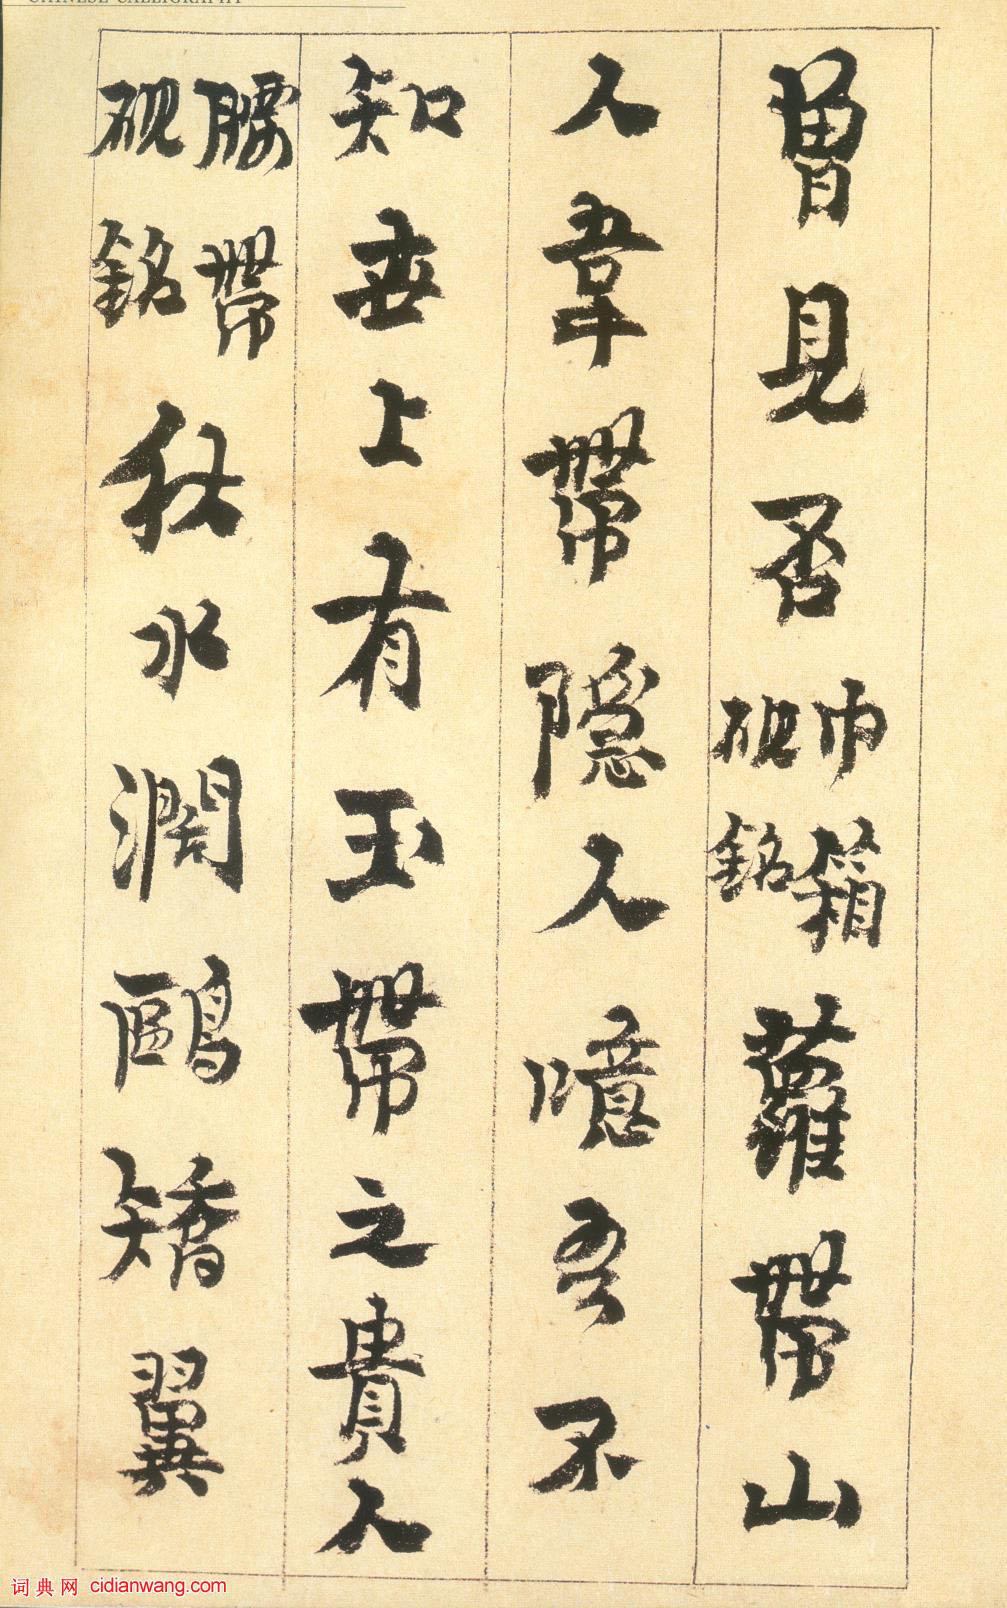 CHINESE CALLIGRAPHY
曾見否 巾箱硯銘 蘿帶山
人韋帶隱人噫吾不
知世上有玉帶之貴人
腰帶硯銘 秋水潤鷗矯翼
词典网 cidianwang.com